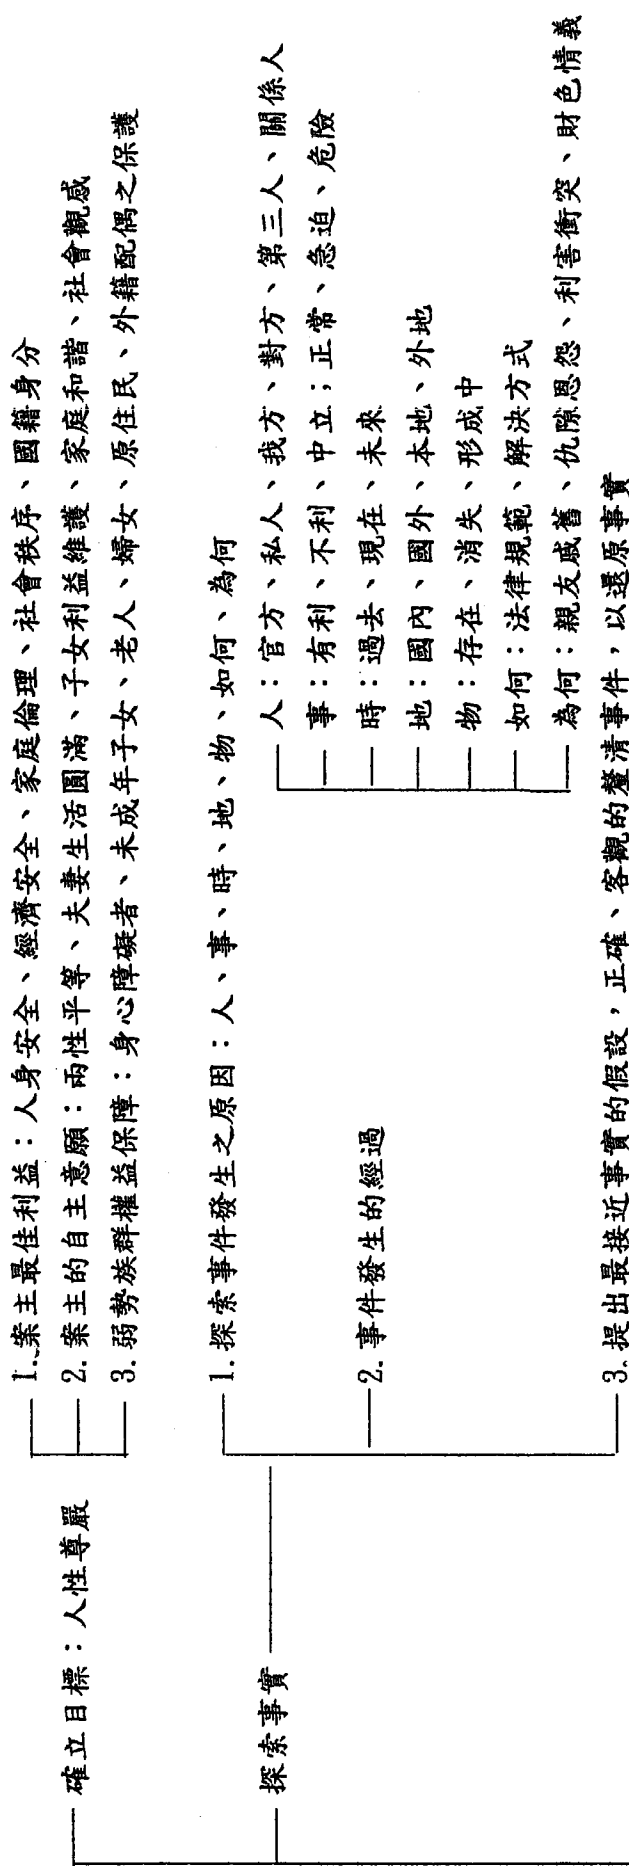 確立目標：人性尊嚴
1.案主最佳利益：人身安全、經濟安全、家庭倫理、社會秩序、國籍身分
2.案主的自主意願：兩性平等、夫妻生活圓滿、子女利益維護、家庭和諧、社會觀感
3.弱勢族群權益保障：身心障礙者、未成年子女、老人、婦女、原住民、外籍配偶之保護
探索事實
1.探索事件發生之原因：人、事、時、地、物、如何、為何
人：官方、私人、我方、對方、第三人、關係人
事：有利、不利、中立；正常、急迫、危險
時：過去、現在、未來
地：國內、國外、本地、外地
物：存在、消失、形成中
如何：法律規範、解決方式
為何：親友戚舊、仇隙恩怨、利害衝突、財色情義
2.事件發生的經過
3.提出最接近事實的假設，正確、客觀的釐清事件，以還原事實